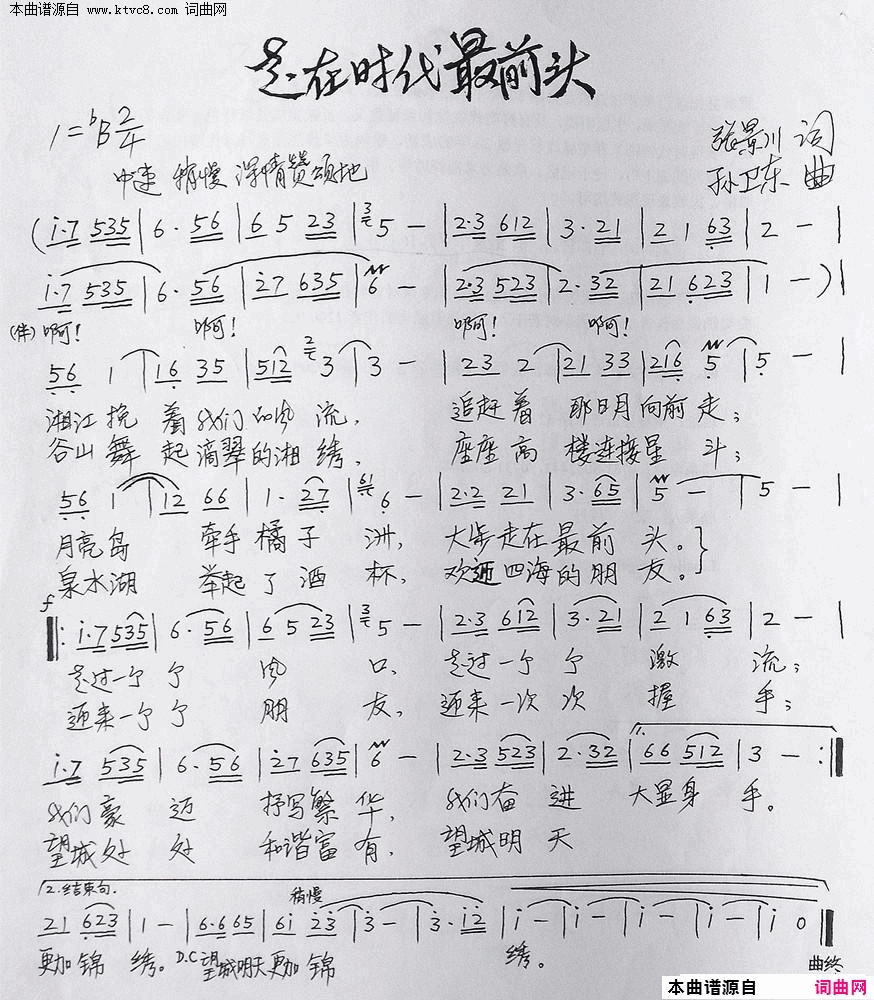 本曲谱源自
www.ktvc8.com 词曲网
走在时代最前头
1=ᵇB 2/4
张景川 词
中速 稍慢 深情赞颂地
孙卫东 曲
(i·7 535 | 6· 56 | 6 5 23 | 5 — | 2·3 612 | 3· 21 | 2 1 63 | 2 — |
i·7 535 | 6· 56 | 27 635 | 6 — | 2·3 523 | 2· 32 | 21 623 | 1 — ) |
(伴) 啊! 啊! 啊! 啊!
56 1 | 16 35 | 512 3 | 3 — | 23 2 | 21 33 | 216 5 | 5 — |
湘江挽 着我们的风 流, 追赶着 那日月向前 走;
谷山舞 起滴翠的湘 绣, 座座高 楼连接星 斗;
56 1 | 12 66 | 1· 27 | 6 — | 2·2 21 | 3· 65 | 5 — | 5 — |
月亮岛 牵手橘子 洲, 大步走在最前 头。
泉水湖 举起了酒 杯, 欢迎四海的朋 友。
f
‖: i·7 535 | 6· 56 | 6 5 23 | 5 — | 2·3 612 | 3· 21 | 2 1 63 | 2 — |
走过一个个 风 口, 走过一个个 激 流;
迎来一个个 朋 友, 迎来一次次 握 手;
1.
i·7 535 | 6· 56 | 27 635 | 6 — | 2·3 523 | 2· 32 | 66 512 | 3 — :‖
我们豪 迈 抒写繁 华, 我们奋 进 大显身 手。
望城处 处 和谐富 有, 望城明 天
2.结束句. 稍慢
21 623 | 1 — | 6·6 65 | 6i 23 | 3 — | 3· i2 | i — | i — | i — | i — | i 0 ‖
更加锦 绣。 D.C 望城明天更加锦 绣。 曲终
本曲谱源自 词曲网